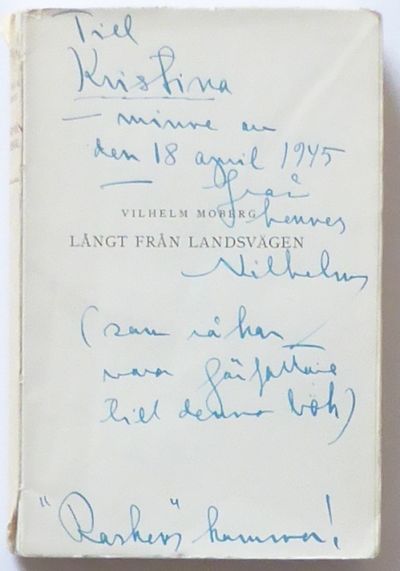 Till
Kristina
– minne av
den 18 april 1945
–
från
hennes
VILHELM MOBERG
LÅNGT FRÅN LANDSVÄGEN
Vilhelm
(som råkar
vara författare
till denna bok)
"Raskens" kammer!